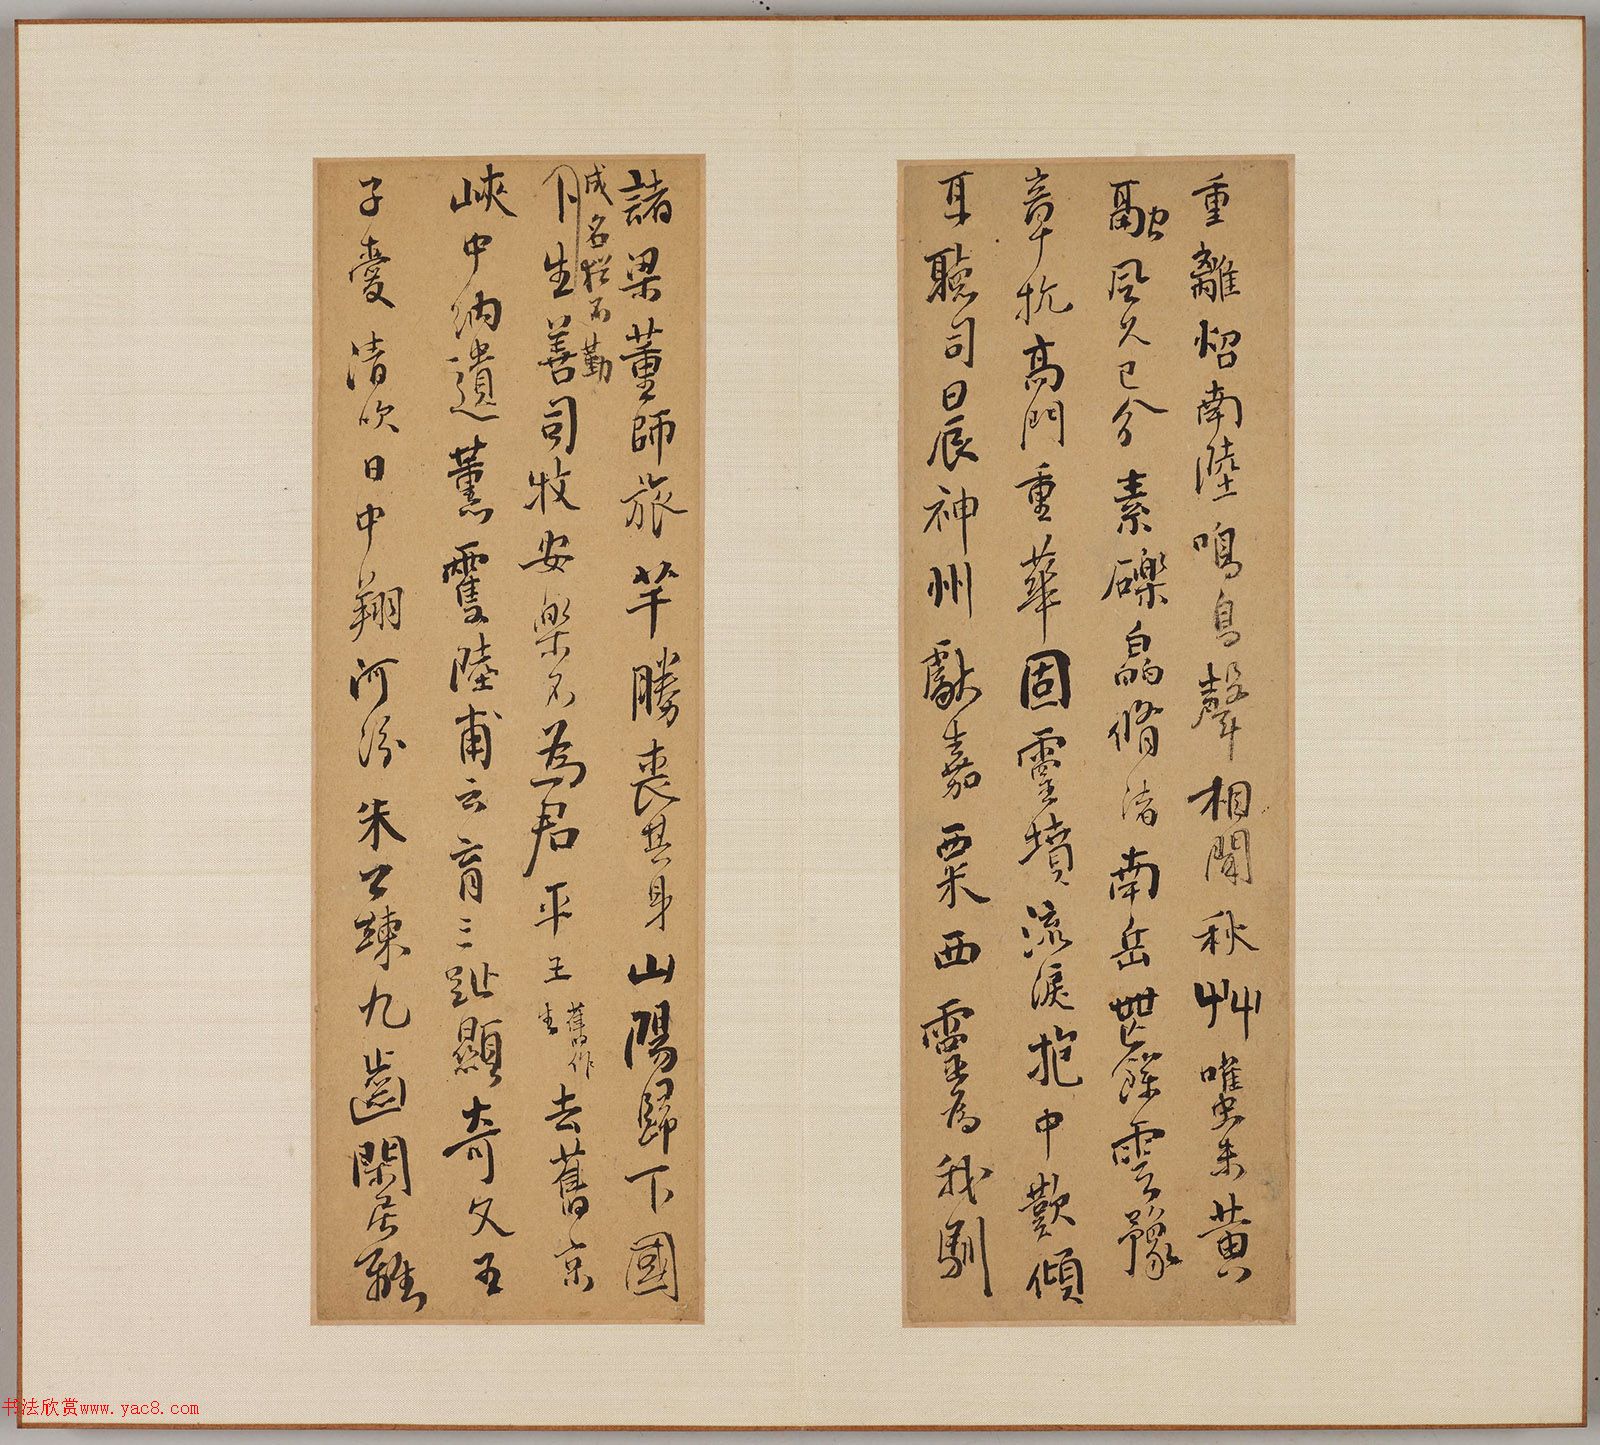 重離炤南陸鳴鳥聲相聞秋艸雖未黃
融風久已分素礫皛脩渚南岳無餘雲豫
章抗高門重華固靈墳流淚抱中歎傾
耳聽司日辰神州獻嘉粟西靈為我馴
諸梁董師旅芊勝喪其身山陽歸下國
成名猶不勤
生善司牧安樂不為君平王舊作生去舊京
峽中納遺薰雙陸甫云育三趾顯奇文王
子愛清吹日中翔河汾朱公練九齒閑居離
书法欣赏www.yac8.com